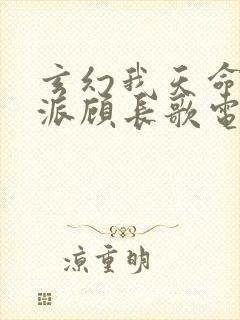 玄幻我天命
派顾长歌电
凉重明